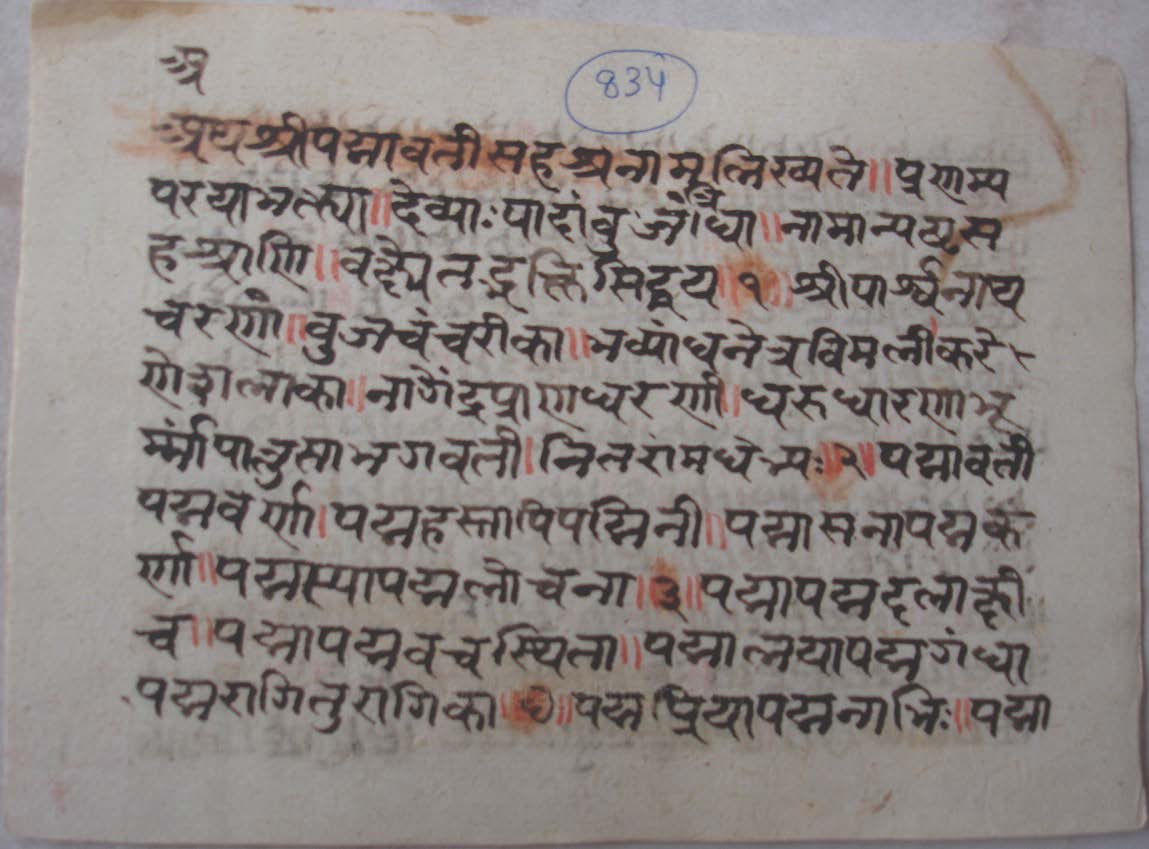 श्री
834
अथ श्रीपद्मावतीसहश्रनामलिख्यते॥ प्रणम्य
परयाभक्त्या॥ देव्याः पादांवुजंत्रिधा॥ नामान्यष्टस
हश्राणि॥ वक्ष्येतद्भक्तिसिद्धय॥१॥ श्रीपार्श्वनाथ
चरणां॥वुजचंचरीका॥भव्यांधनेत्रविमलीकरे
णेशलाका॥नागेंद्रप्राणधरणी॥धरुधारणाभृ
र्म्मांपातुसाभगवती।नितरामघेभ्यः॥२॥पद्मावती
पद्मवर्णा।पद्महस्तापिपद्मिनी॥पद्मासनापद्मक
र्णा॥पद्मास्यापद्मलोचना॥३॥पद्मापद्मदलाक्षी
च॥पद्मापद्मवचस्थिता॥पद्मालयापद्मगंधा
पद्मरागितुरागिका॥४॥पद्मप्रियापद्मनाभिः॥पद्मा